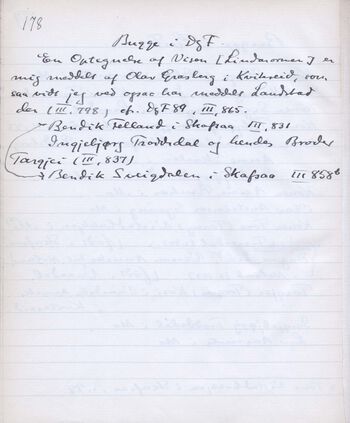 178
Bugge i DgF.
En Optegnelse af Visen [Lindarormen] er
mig meddelt af Olav Grasberg i Kviteseid, som
saa vidt jeg ved ogsaa har meddelt Landstad
den (III, 798), cf. DgF 89, III, 865.
Bendik Felland i Skafsaa III, 831
Ingjebjørg Troddsdal og hendes Broder
Targjei (III, 837)
Bendik Sveigdalen i Skafsaa III 858b